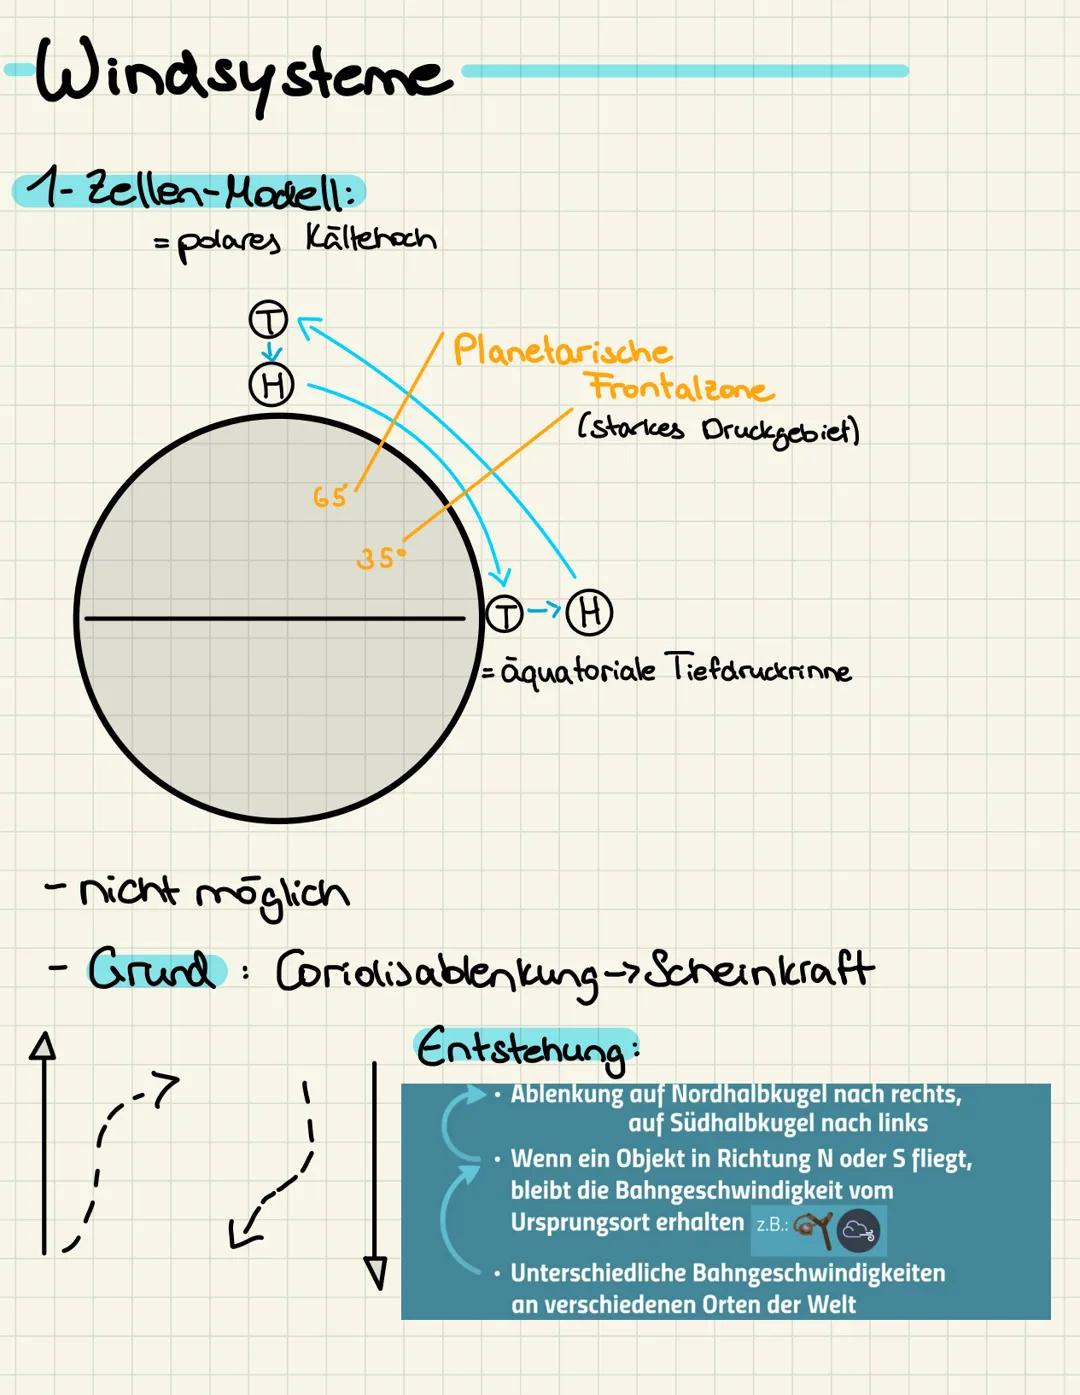 Windsysteme
1-Zellen-Modell:
= polares Kältehoch
T
H
Planetarische
Frontalzone
(starkes Druckgebiet)
65°
35°
T -> H
= äquatoriale Tiefdruckrinne
- nicht möglich
- Grund: Coriolisablenkung -> Scheinkraft
Entstehung:
• Ablenkung auf Nordhalbkugel nach rechts,
auf Südhalbkugel nach links
• Wenn ein Objekt in Richtung N oder S fliegt,
bleibt die Bahngeschwindigkeit vom
Ursprungsort erhalten z.B.:
• Unterschiedliche Bahngeschwindigkeiten
an verschiedenen Orten der Welt